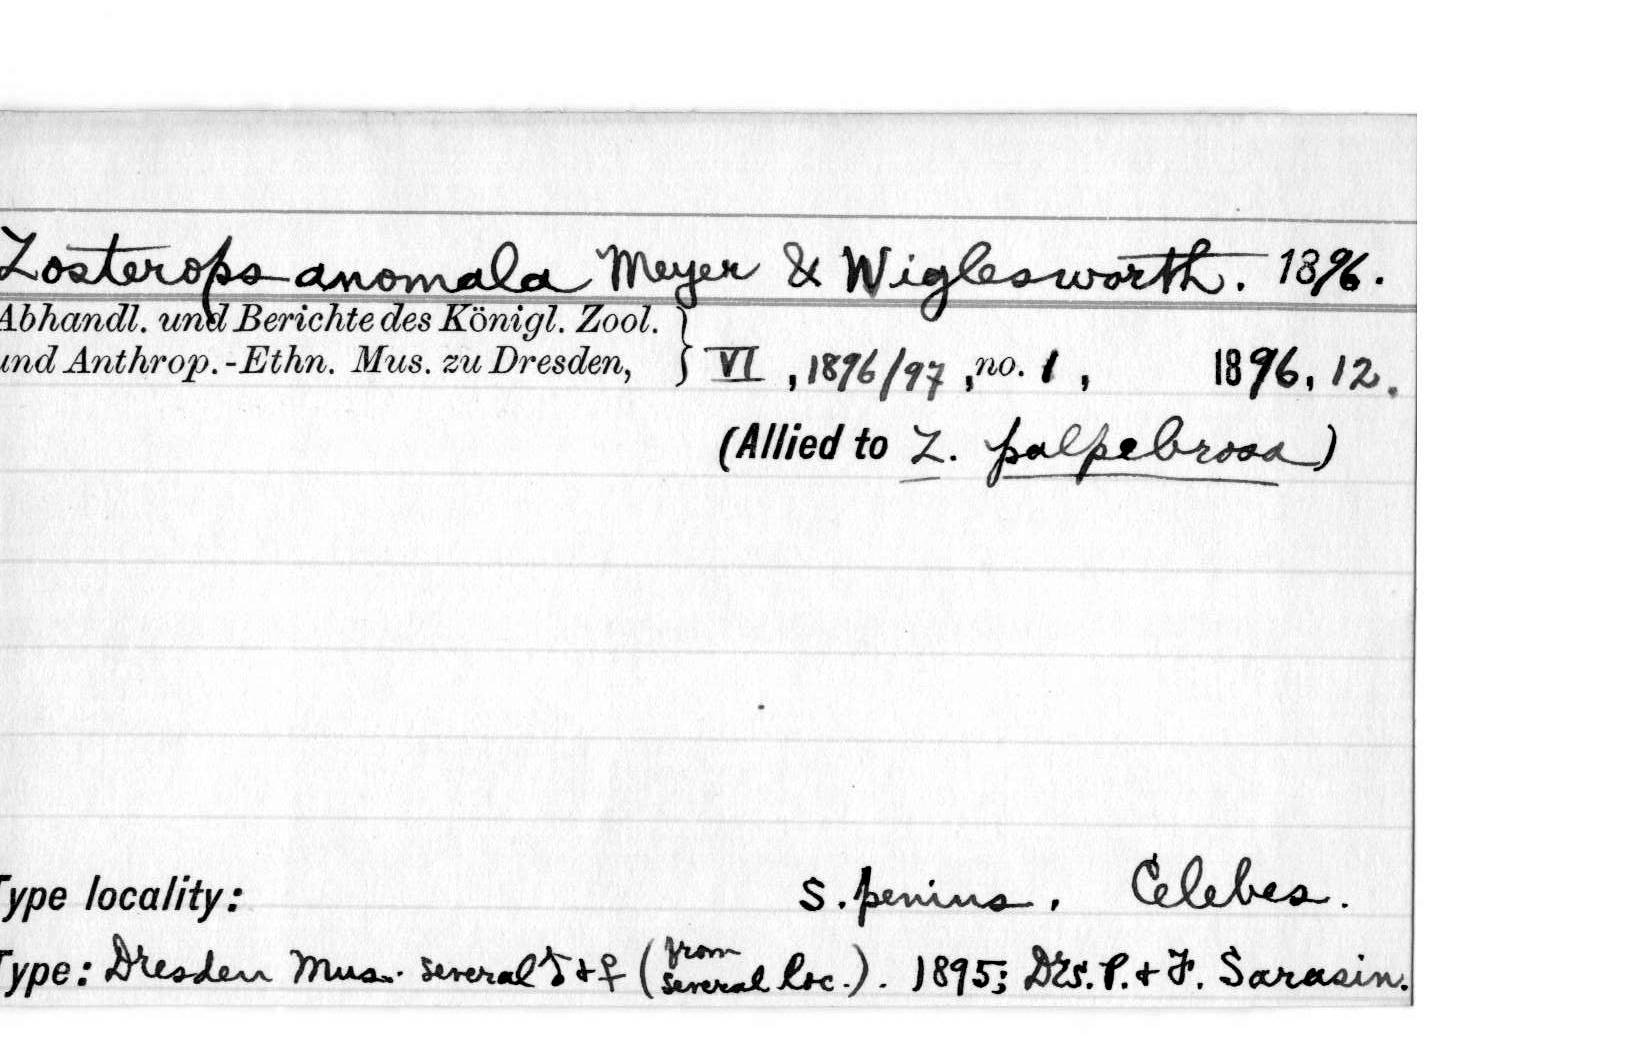 Zosterops anomala Meyer & Wiglesworth. 1896.
Abhandl. und Berichte des Königl. Zool.
und Anthrop.-Ethn. Mus. zu Dresden, } VI, 1896/97, no. 1, 1896, 12.
(Allied to Z. palpebrosa)
Type locality: S. penins., Celebes.
Type: Dresden Mus. several ♂ + ♀ (from several loc.). 1895; Drs. P. + F. Sarasin.